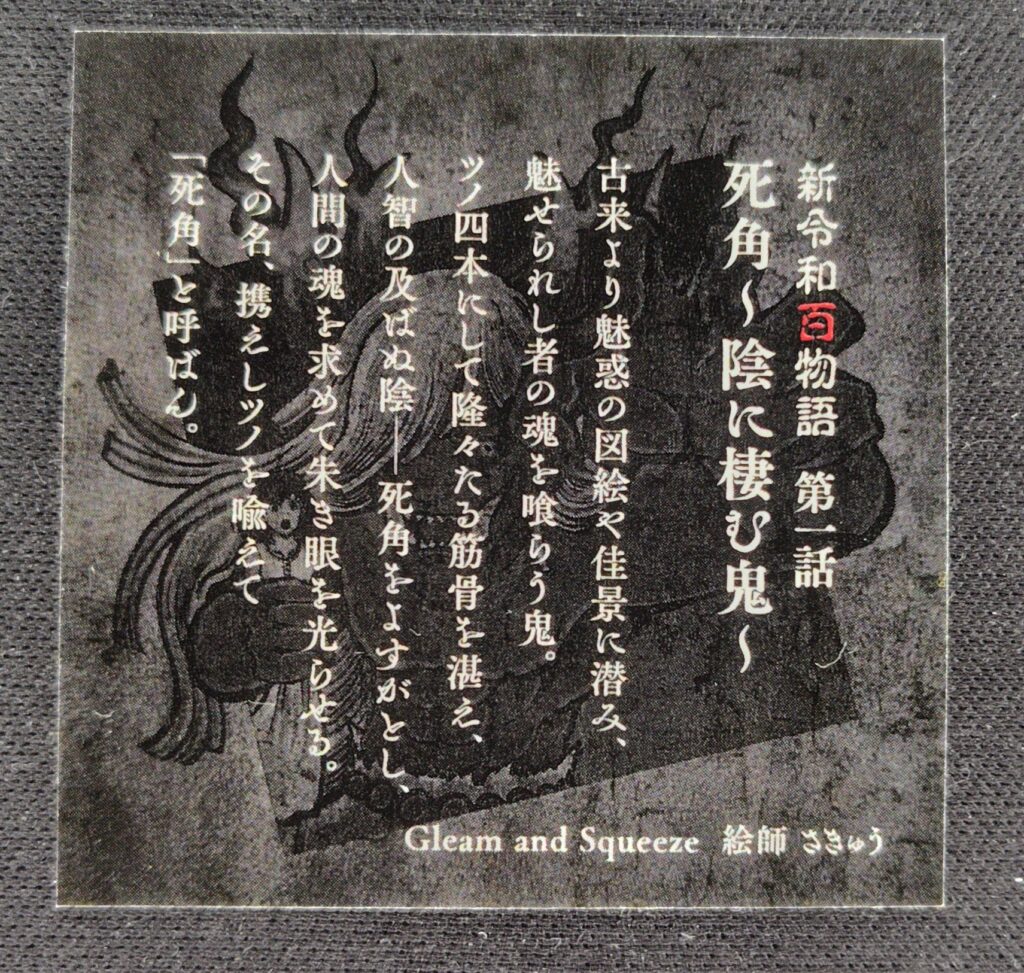 新令和百物語 第一話
死角～陰に棲む鬼～
古来より魅惑の図絵や佳景に潜み、
魅せられし者の魂を喰らう鬼。
ツノ四本にして隆々たる筋骨を湛え、
人智の及ばぬ陰―死角をよすがとし、
人間の魂を求めて朱き眼を光らせる。
その名、携えしツノを喩えて
「死角」と呼ばん。
Gleam and Squeeze 絵師 さきゅう